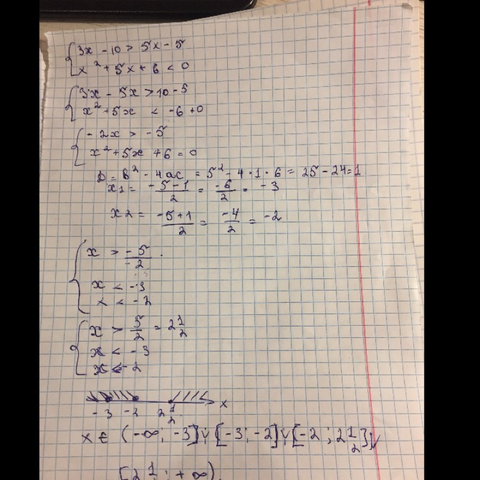 { 3x - 10 > 5x - 5
x² + 5x + 6 < 0
{ 3x - 5x > 10 - 5
x² + 5x < -6 + 0
{ -2x > -5
x² + 5x + 6 = 0
D = b² - 4ac = 5² - 4·1·6 = 25 - 24 = 1
x1 = -5-1/2 = -6/2 = -3
x2 = -5+1/2 = -4/2 = -2
{ x > -5/-2.
x < -3
x < -2
{ x > 5/2 = 2 1/2
x < -3
x < -2
-3 -2 2 1/2 x
x ∈ (-∞; -3] ∪ [-3; -2] ∪ [-2; 2 1/2] ∪
[2 1/2; +∞).